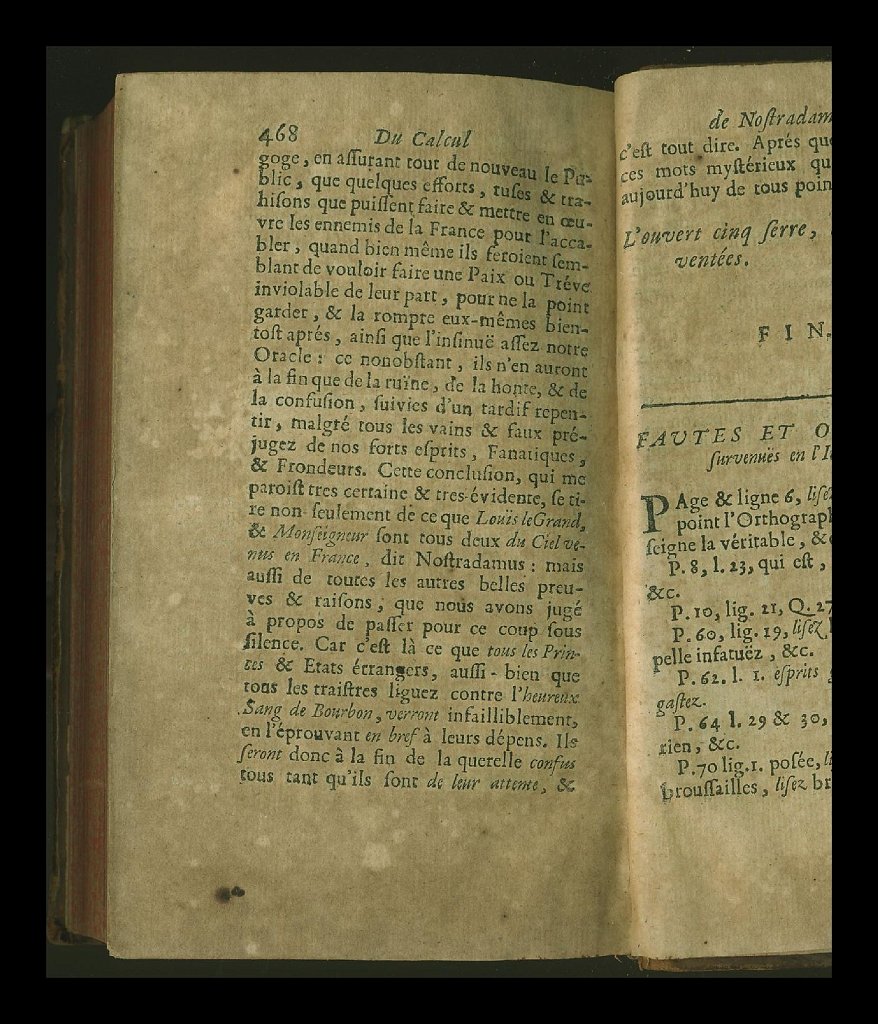 468 Du Calcul
goge, en assurant tout de nouveau le Pu-
blic, que quelques efforts, ruses & tra-
hisons que puissent faire & mettre en œu-
vre les ennemis de la France pour l'acca-
bler, quand bien même ils feroient sem-
blant de vouloir faire une Paix ou Tréve
inviolable de leur part, pour ne la point
garder, & la rompre eux-mêmes bien-
tost aprés, ainsi que l'insinuë assez notre
Oracle : ce nonobstant, ils n'en auront
à la fin que de la ruïne, de la honte, & de
la confusion, suivies d'un tardif repen-
tir, malgré tous les vains & faux pré-
jugez de nos forts esprits, Fanatiques,
& Frondeurs. Cette conclusion, qui me
paroist tres certaine & tres-évidente, se ti-
re non-seulement de ce que Louïs le Grand,
& Monseigneur sont tous deux du Ciel ve-
nus en France, dit Nostradamus : mais
aussi de toutes les autres belles preu-
ves & raisons, que nous avons jugé
à propos de passer pour ce coup sous
silence. Car c'est là ce que tous les Prin-
ces & Etats étrangers, aussi-bien que
tous les traistres liguez contre l'heureux
Sang de Bourbon, verront infailliblement,
en l'éprouvant en bref à leurs dépens. Ils
seront donc à la fin de la querelle confus
tous tant qu'ils sont de leur attente, &
de Nostradam
c'est tout dire. Aprés que
ces mots mystérieux qu
aujourd'huy de tous poin
L'ouvert cinq serre,
ventées.
FIN.
FAVTES ET O
survenuës en l'I
PAge & ligne 6, lisez
point l'Orthograph
seigne la véritable, &
P. 8, l. 23, qui est,
&c.
P. 10, lig. 21, Q. 27
P. 60, lig. 19, lisez
pelle infatuëz, &c.
P. 62. l. 1. esprits
gastez.
P. 64 l. 29 & 30,
rien, &c.
P. 70 lig. 1. posée, li
broussailles, lisez br